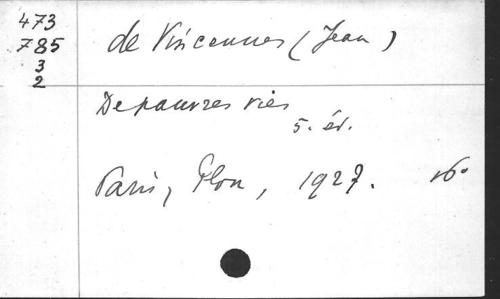 473
785
3
2
de Vincennes (Jean)
De pauvres vies
5. éd.
Paris, Plon, 1927. 16°